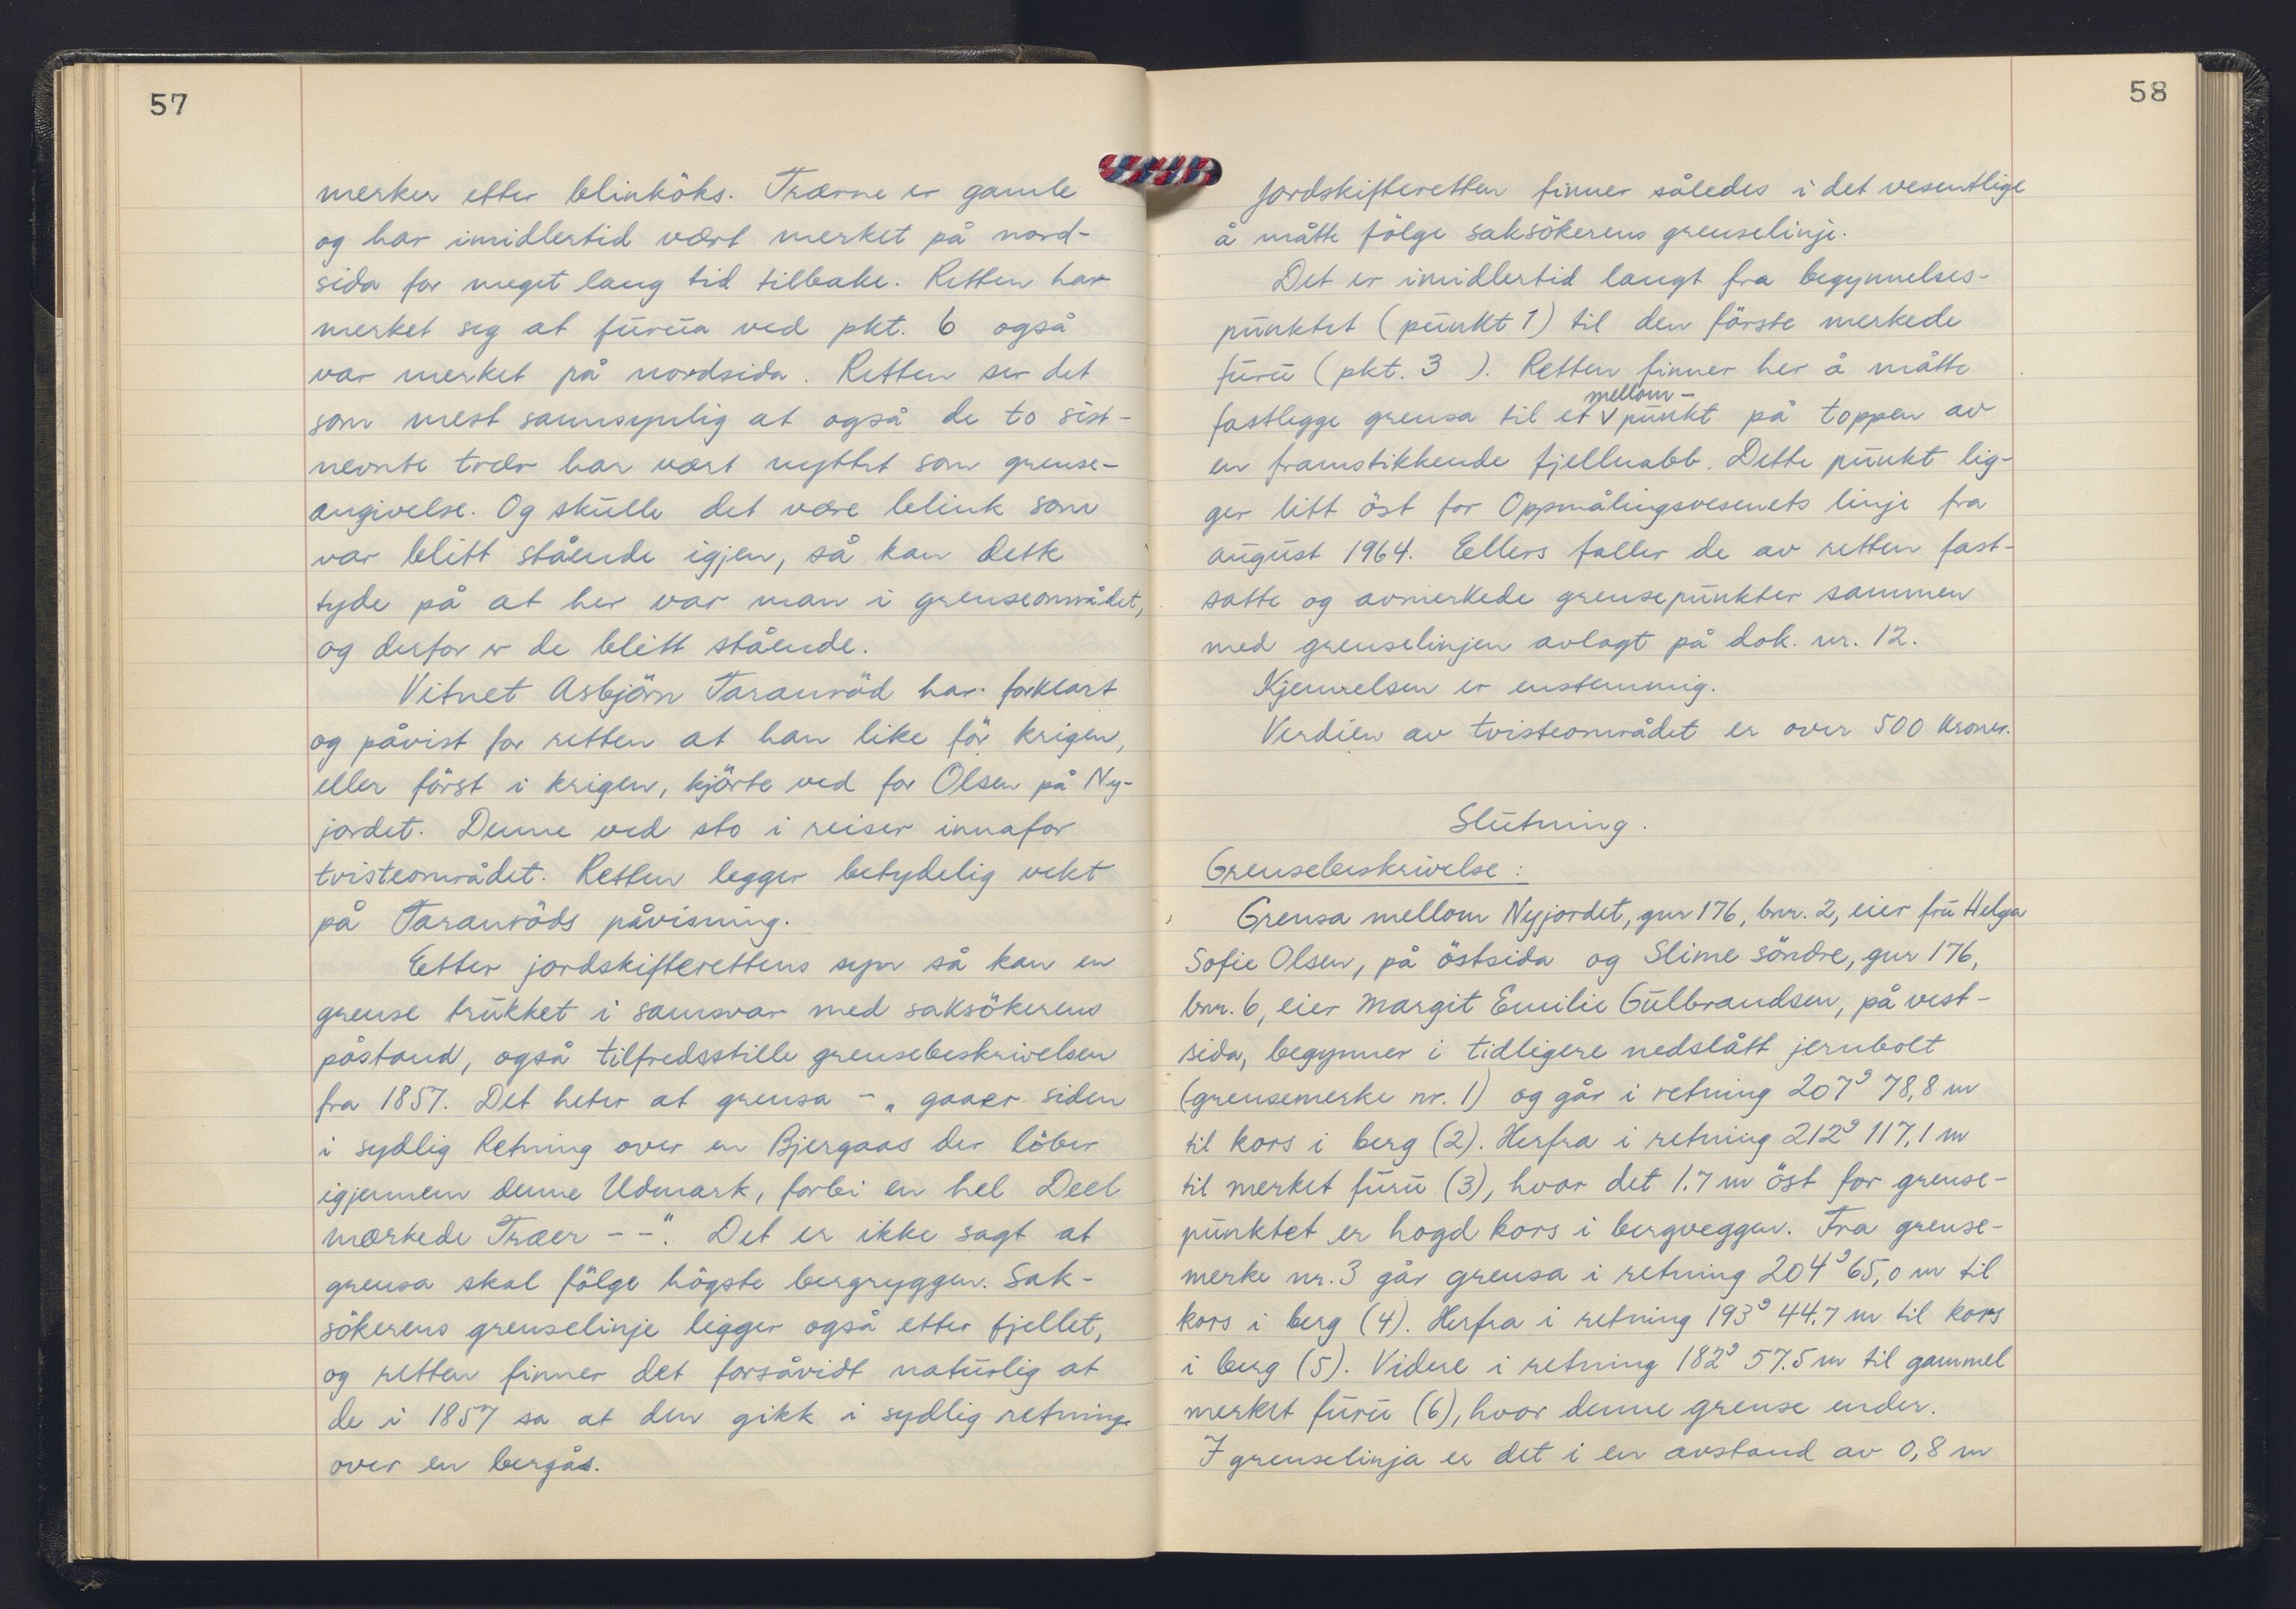 57
merker etter blinköks. Trærne er gamle
og har imidlertid vært merket på nord-
sida for meget lang tid tilbake. Retten har
merket seg at furua ved pkt. 6 også
var merket på nordsida. Retten ser det
som mest sannsynlig at også de to sist-
nevnte trær har vært nyttet som grense-
angivelse. Og skulle det være blink som
var blitt stående igjen, så kan dette
tyde på at her var man i grenseområdet,
og derfor er de blitt stående.
Vitnet Asbjörn Taranröd har forklart
og påvist for retten at han like för krigen,
eller först i krigen, kjörte ved for Olsen på Ny-
jordet. Denne ved sto i reiser innafor
tvisteområdet. Retten legger betydelig vekt
på Taranröds påvisning.
Etter jordskifterettens syn så kan en
grense trukket i samsvar med saksökerens
påstand, også tilfredsstille grensebeskrivelsen
fra 1857. Det heter at grensa - „ gaaer siden
i sydlig Retning over en Bjergaas der löber
igjennem denne Udmark, forbi en hel Deel
mærkede Træer - -". Det er ikke sagt at
grensa skal fölge högste bergryggen. Sak-
sökerens grenselinje ligger også etter fjellet,
og retten finner det forsåvidt naturlig at
de i 1857 sa at den gikk i sydlig retning
over en bergås.
58
Jordskifteretten finner således i det vesentlige
å måtte fölge saksökerens grenselinje.
Det er imidlertid langt fra begynnelses-
punktet (punkt 1) til den förste merkede
furu (pkt. 3 ). Retten finner her å måtte
mellom-
fastlegge grensa til et v punkt på toppen av
en framstikkende fjellnabb. Dette punkt lig-
ger litt öst for Oppmålingsvesenets linje fra
august 1964. Ellers faller de av retten fast-
satte og avmerkede grensepunkter sammen
med grenselinjen avlagt på dok. nr. 12.
Kjennelsen er enstemmig.
Verdien av tvisteområdet er over 500 kroner.
Slutning.
Grensebeskrivelse:
Grensa mellom Nyjordet, gnr 176, bnr. 2, eier fru Helga
Sofie Olsen, på östsida og Slime söndre, gnr 176,
bnr. 6, eier Margit Emilie Gulbrandsen, på vest-
sida, begynner i tidligere nedslått jernbolt
(grensemerke nr. 1) og går i retning 207ᵍ 78,8 m
til kors i berg (2). Herfra i retning 212ᵍ 117,1 m
til merket furu (3), hvor det 1.7 m öst for grense-
punktet er hogd kors i bergveggen. Fra grense-
merke nr. 3 går grensa i retning 204ᵍ 65,0 m til
kors i berg (4). Herfra i retning 193ᵍ 44.7 m til kors
i berg (5). Videre i retning 182ᵍ 57.5 m til gammel
merket furu (6), hvor denne grense ender.
I grenselinja er det i en avstand av 0,8 m